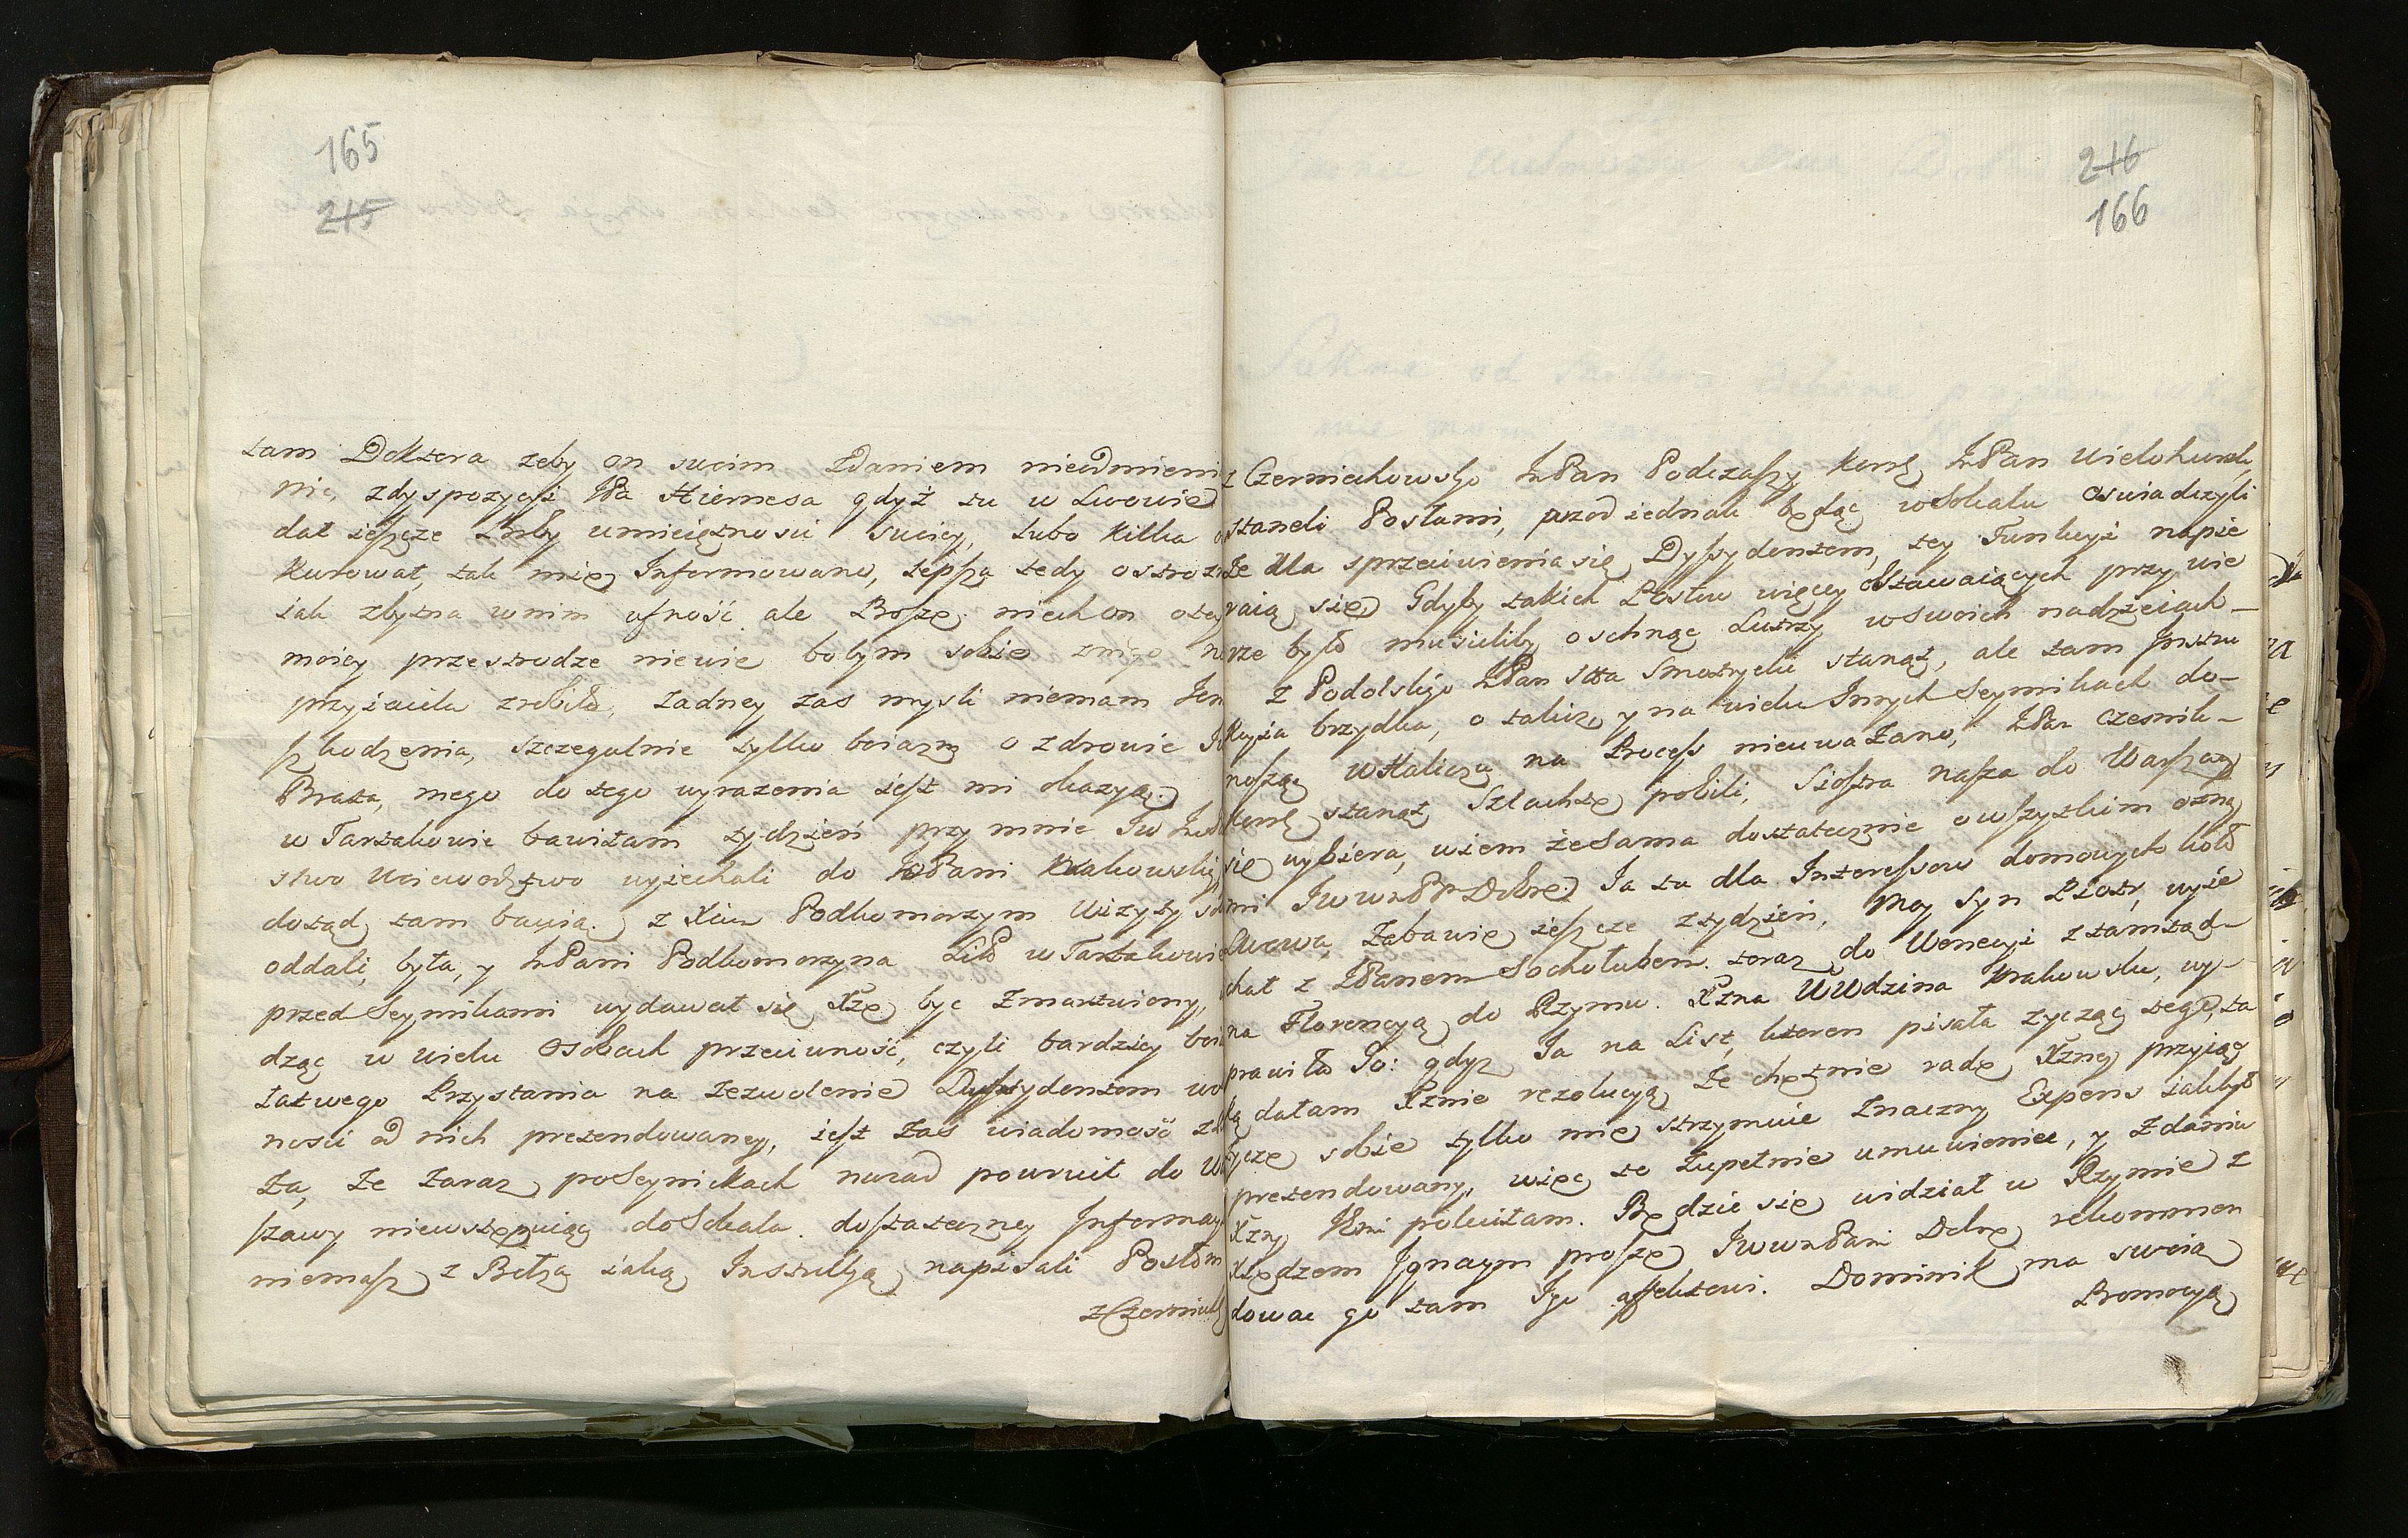 165
215
tam Doktora zeby on swoim zdaniem nieodmieni
nic, zdyspozycyi JPa Hiernesa gdyż tu w Lwowie
dał ieszcze proby umieiętnosci swoiey, lubo kilka
kurował, tak mię Informowano, lepsza tedy ostroz
iak zbytna w nim ufność ale Proszę niech on o tey
moiey przestrodze niewie bo bym sobie z niego
przyiaciela zrobiła, żadney zas mysli niemam
szkodzenia, szczegulnie tylko boiazn o zdrowie
Brata, mego do tego wyrazenia iest mi okazyą.
w Tartakowie bawiłam tydzień przy mnie
stwo Woiewodztwo wyiechali do JPani Krakowskiey,
dotąd tam bawią. z Xciem Podkomorzym Wizyty
oddali, była, y JPani Podkomorzyna Lit w Tartakowie
przed Seymikami wydawał się Xże byc zmartwiony,
dząc w wielu Osobach przeciwność, czyli bardziey
łatwego Przystania na zezwolenie Dyssydentom
nosci od nich pretendowaney, iest zaś wiadomość
ża, że zaraz po Seymickach nazad powrucił do
szawy niewstępuiąc do Sokala. dostateczney Informacyi
niemasz z Bełza iaką Instrukcyą napisali Posłom
z Czerniech
216
166
z Czerniechowskiego JPan Podczaszy Kor JPan Wielohurski
staneli Posłami, przod iednak będąc w Sokalu oswiadczyli
że dla sprzeciwienia się Dyssydentom, tey Funkcyi napie
raią się Gdyby takich Posłow więcey obstawaiących przy wie
rze było musieliby oschnąc Lutrzy w swoich nadzieiach
z Podolskiego JPan Stta Smotrycki stanął, ale tam Instru
kcyia brzydka, o takiez y na wielu Innych Seymikach do-
noszą w Haliczu na Process nieuwazano, JPan Czesnik
Kor stanął Szlachte pobili, Siostra nasza do Warszawy
się wybiera, wiem że sama dostatecznie o wszystkim ozna
mi JWWM Pni Dobrce. Ja tu dla Interessow domowych koło
Lwowa zabawię ieszcze z tydzień, moy syn Piotr, wyie
chał z JPanem Sochołubem. teraz do Wenecyi z tamtąd
na Florencyą do Rzymu. Xzna WWdzina Krakowska, wy-
prawiła Jo: gdyz Ja na List, kteren pisała zycząc tego, ta
ką dałam Xznie rezolucyą że chętnie radę Xzney przyiąc
zyczę sobie tylko mię strzymuie znaczny Expens iakbył
pretendowany, więc to zupełnie umuwienie, y Zdaniu
Xzny Jmci poleciłam. Będzie się widział w Rzymie z
Xiędzem Jgnacym proszę JWWM Pani Dobre rekommen
dowac go tam Jego affektowi. Dominik ma swoią
Promocyą